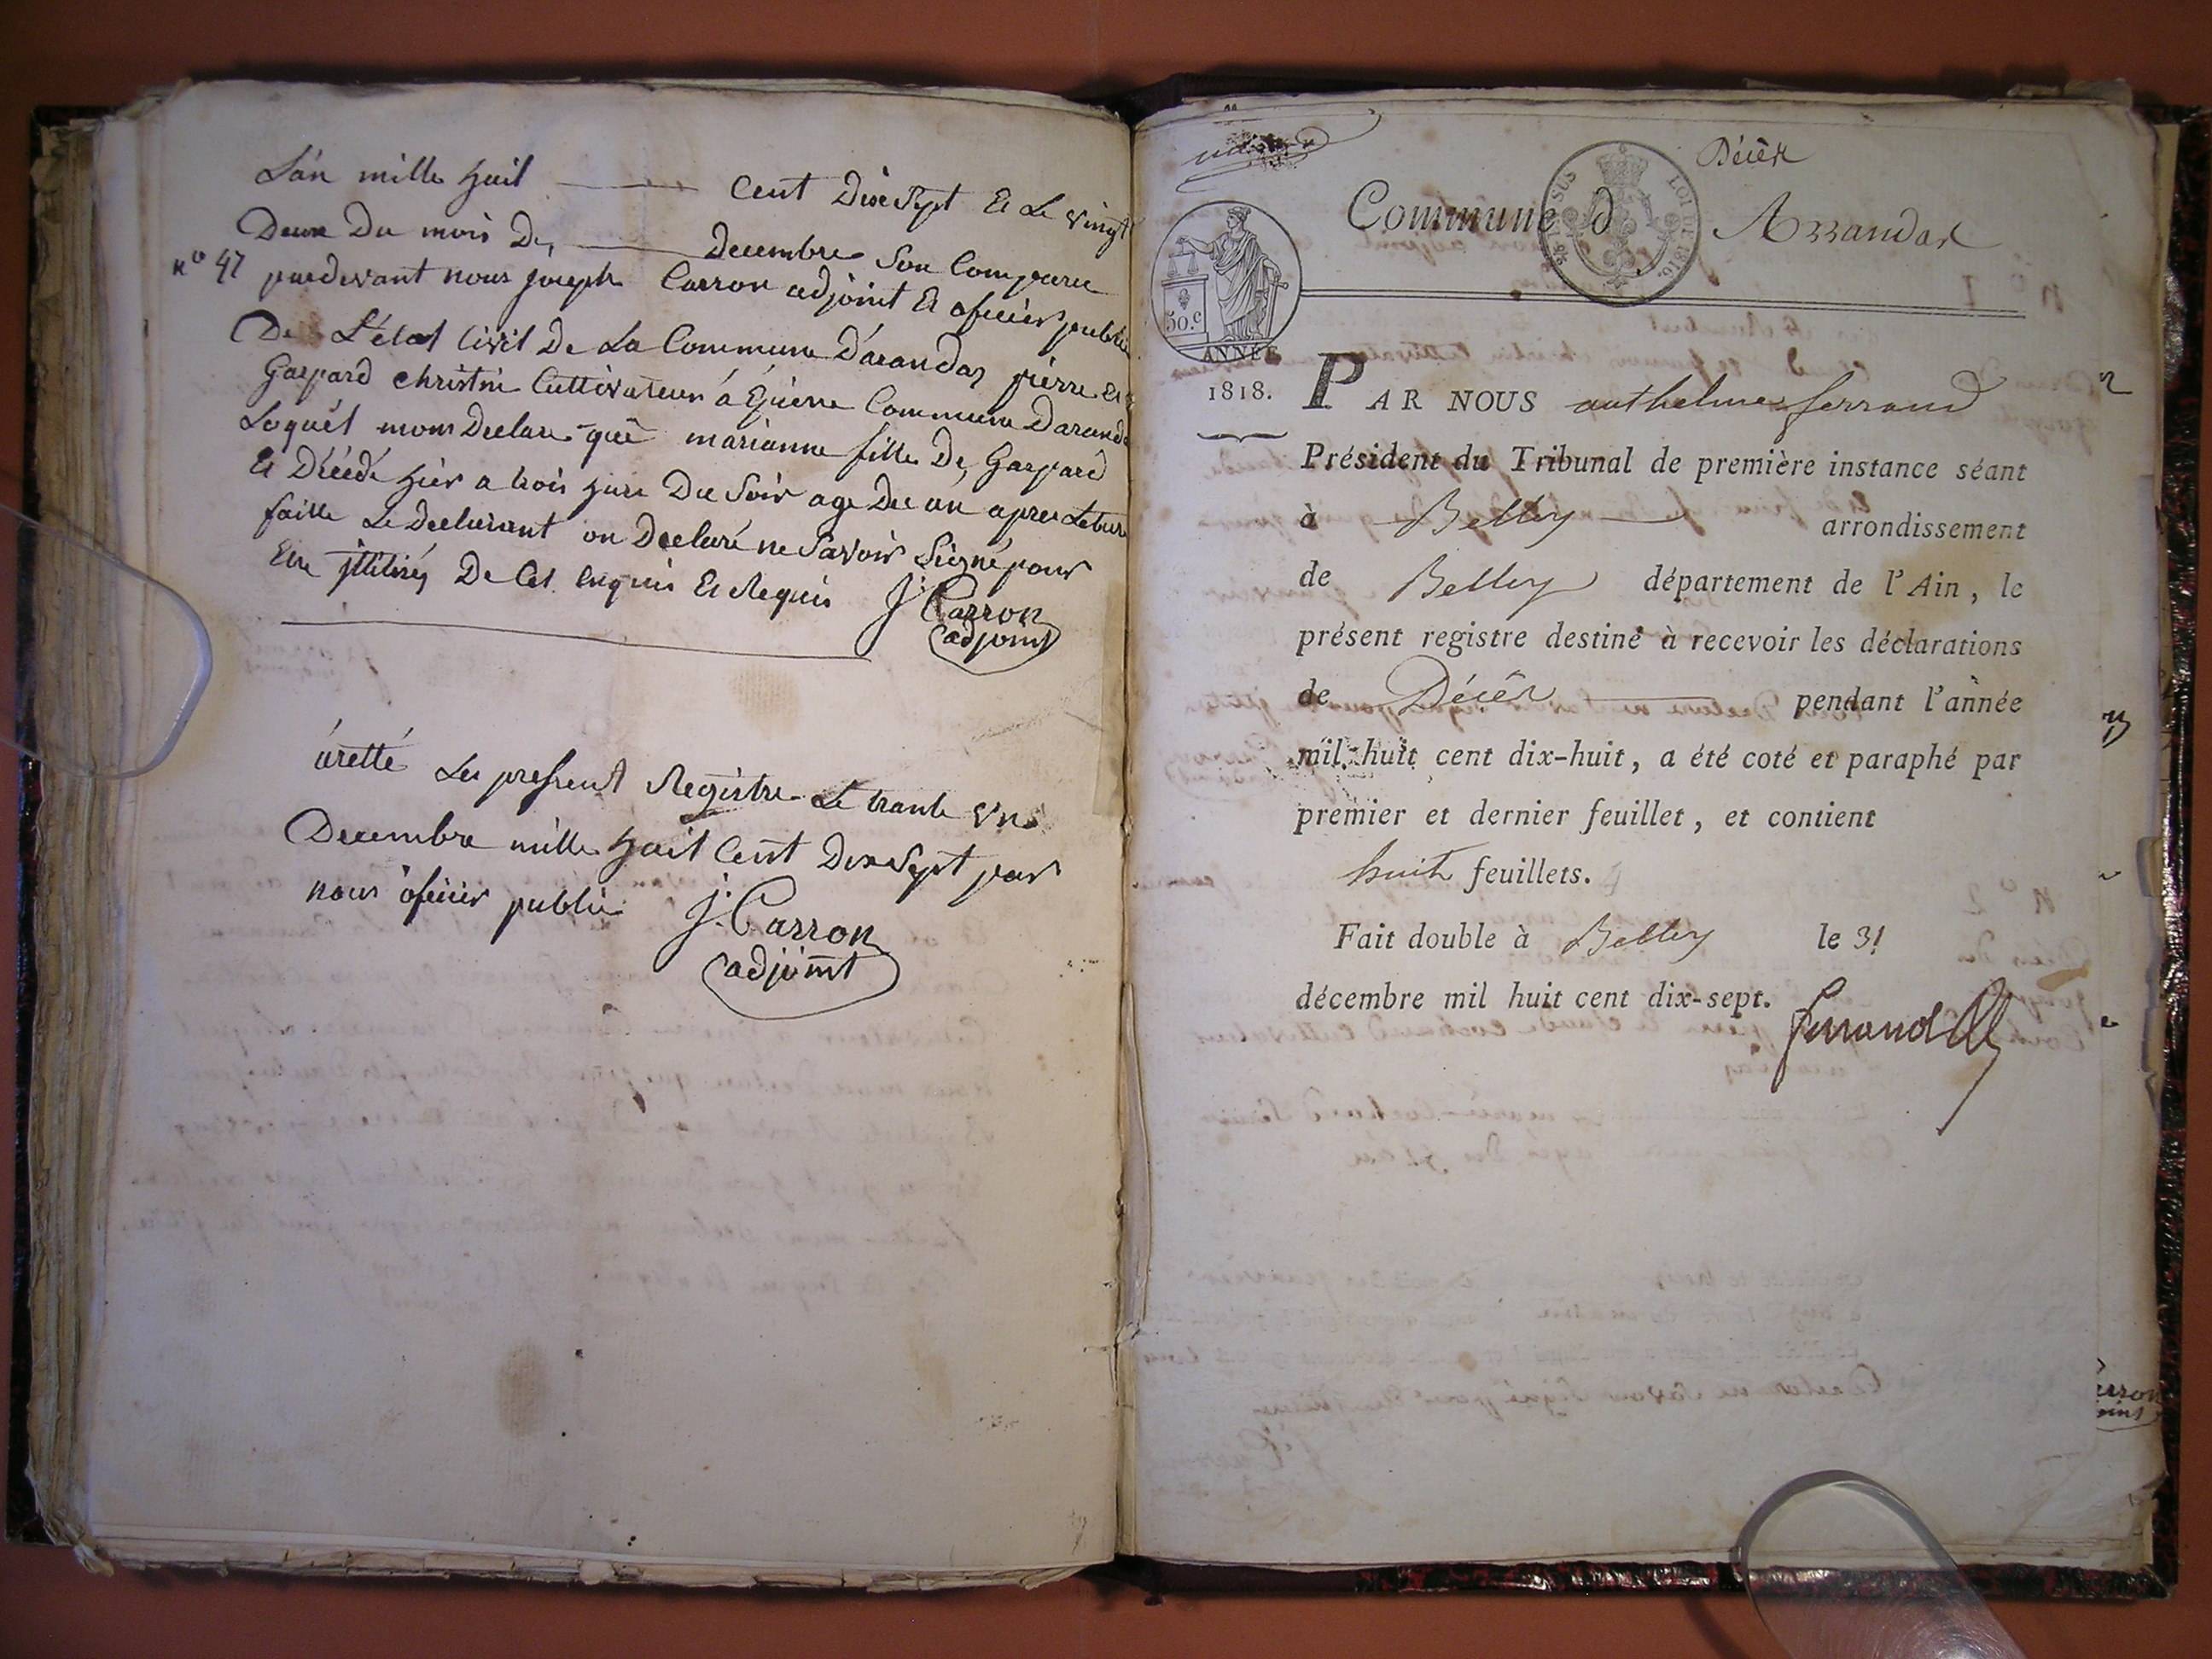 L'an mille huit cent Dix Sept Et Le vingt
Deux Du mois De decembre Son Comparu
n° 47 pardevant nous joseph Carron adjoint Et oficier public
De L'état Civil De La Commune D'arandas pierre Et
Gaspard christin Cultivateur á Épierre Commune Darandas
Loquel mons Declare que marianne fille De Gaspard
Et Décédé hier a trois hure Du Soir age Du un apres Leture
faitte Le Declarant on Declaré ne Savoir Signé pour
Etre jlliterés De Cet enquis Et Requis J. Carron
adjoint
áretté Le present Registre Le trante un
Decembre mille huit Cent Dix Sept par
nous ofisier public J. Carron
adjoint
Décès
Commune d Arrandas
TIMBRE
LOI DE 1816.
50.c
ANNÉE
1818.
PAR NOUS anthelme ferrand
Président du Tribunal de première instance séant
à Belley arrondissement
de Belley département de l'Ain, le
présent registre destiné à recevoir les déclarations
de Décès pendant l'année
mil huit cent dix-huit, a été coté et paraphé par
premier et dernier feuillet, et contient
huit feuillets.
Fait double à Belley le 31
décembre mil huit cent dix-sept.
ferrand